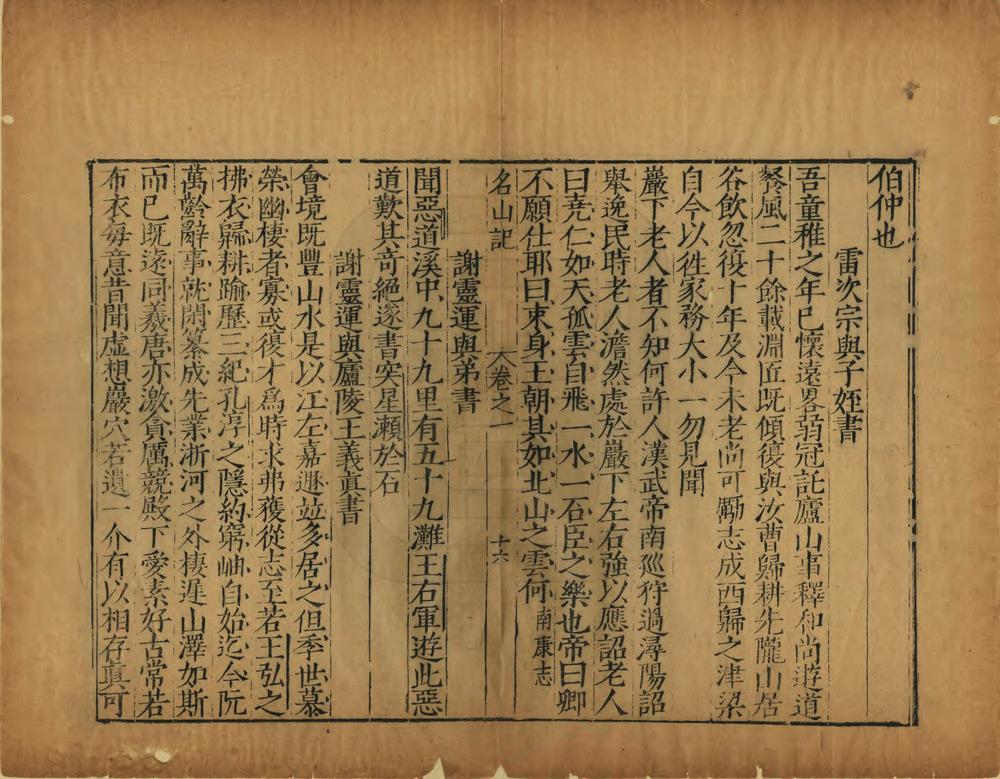 伯仲也
雷次宗與子姪書
吾童稚之年已懷遠畧弱冠託廬山事釋和尚遊道
餐風二十餘載淵匠既傾復與汝曹歸耕先隴山居
谷飲忽復十年及今未老尚可勵志成西歸之津梁
自今以徃家務大小一勿見聞
巖下老人者不知何許人漢武帝南廵狩過潯陽詔
舉逸民時老人澹然處於巖下左右強以應詔老人
曰堯仁如天孤雲自飛一水一石臣之樂也帝曰卿
不願仕耶曰束身王朝其如北山之雲何 南康志
名山記 卷之一 十六
謝靈運與弟書
聞惡道溪中九十九里有五十九灘王右軍遊此惡
道歎其奇絕遂書突星瀨於石
謝靈運與廬陵王義真書
會境既豐山水是以江左嘉遯竝多居之但季世慕
榮幽棲者寡或復才爲時求弗獲從志至若王弘之
拂衣歸耕踰歷三紀孔淳之隱約窮岫自始迄今阮
萬齡辭事就閑纂成先業浙河之外棲遲山澤如斯
而已既遠同羲唐亦激貪厲競殿下愛素好古常若
布衣每意昔聞虛想巖穴若遺一介有以相存真可